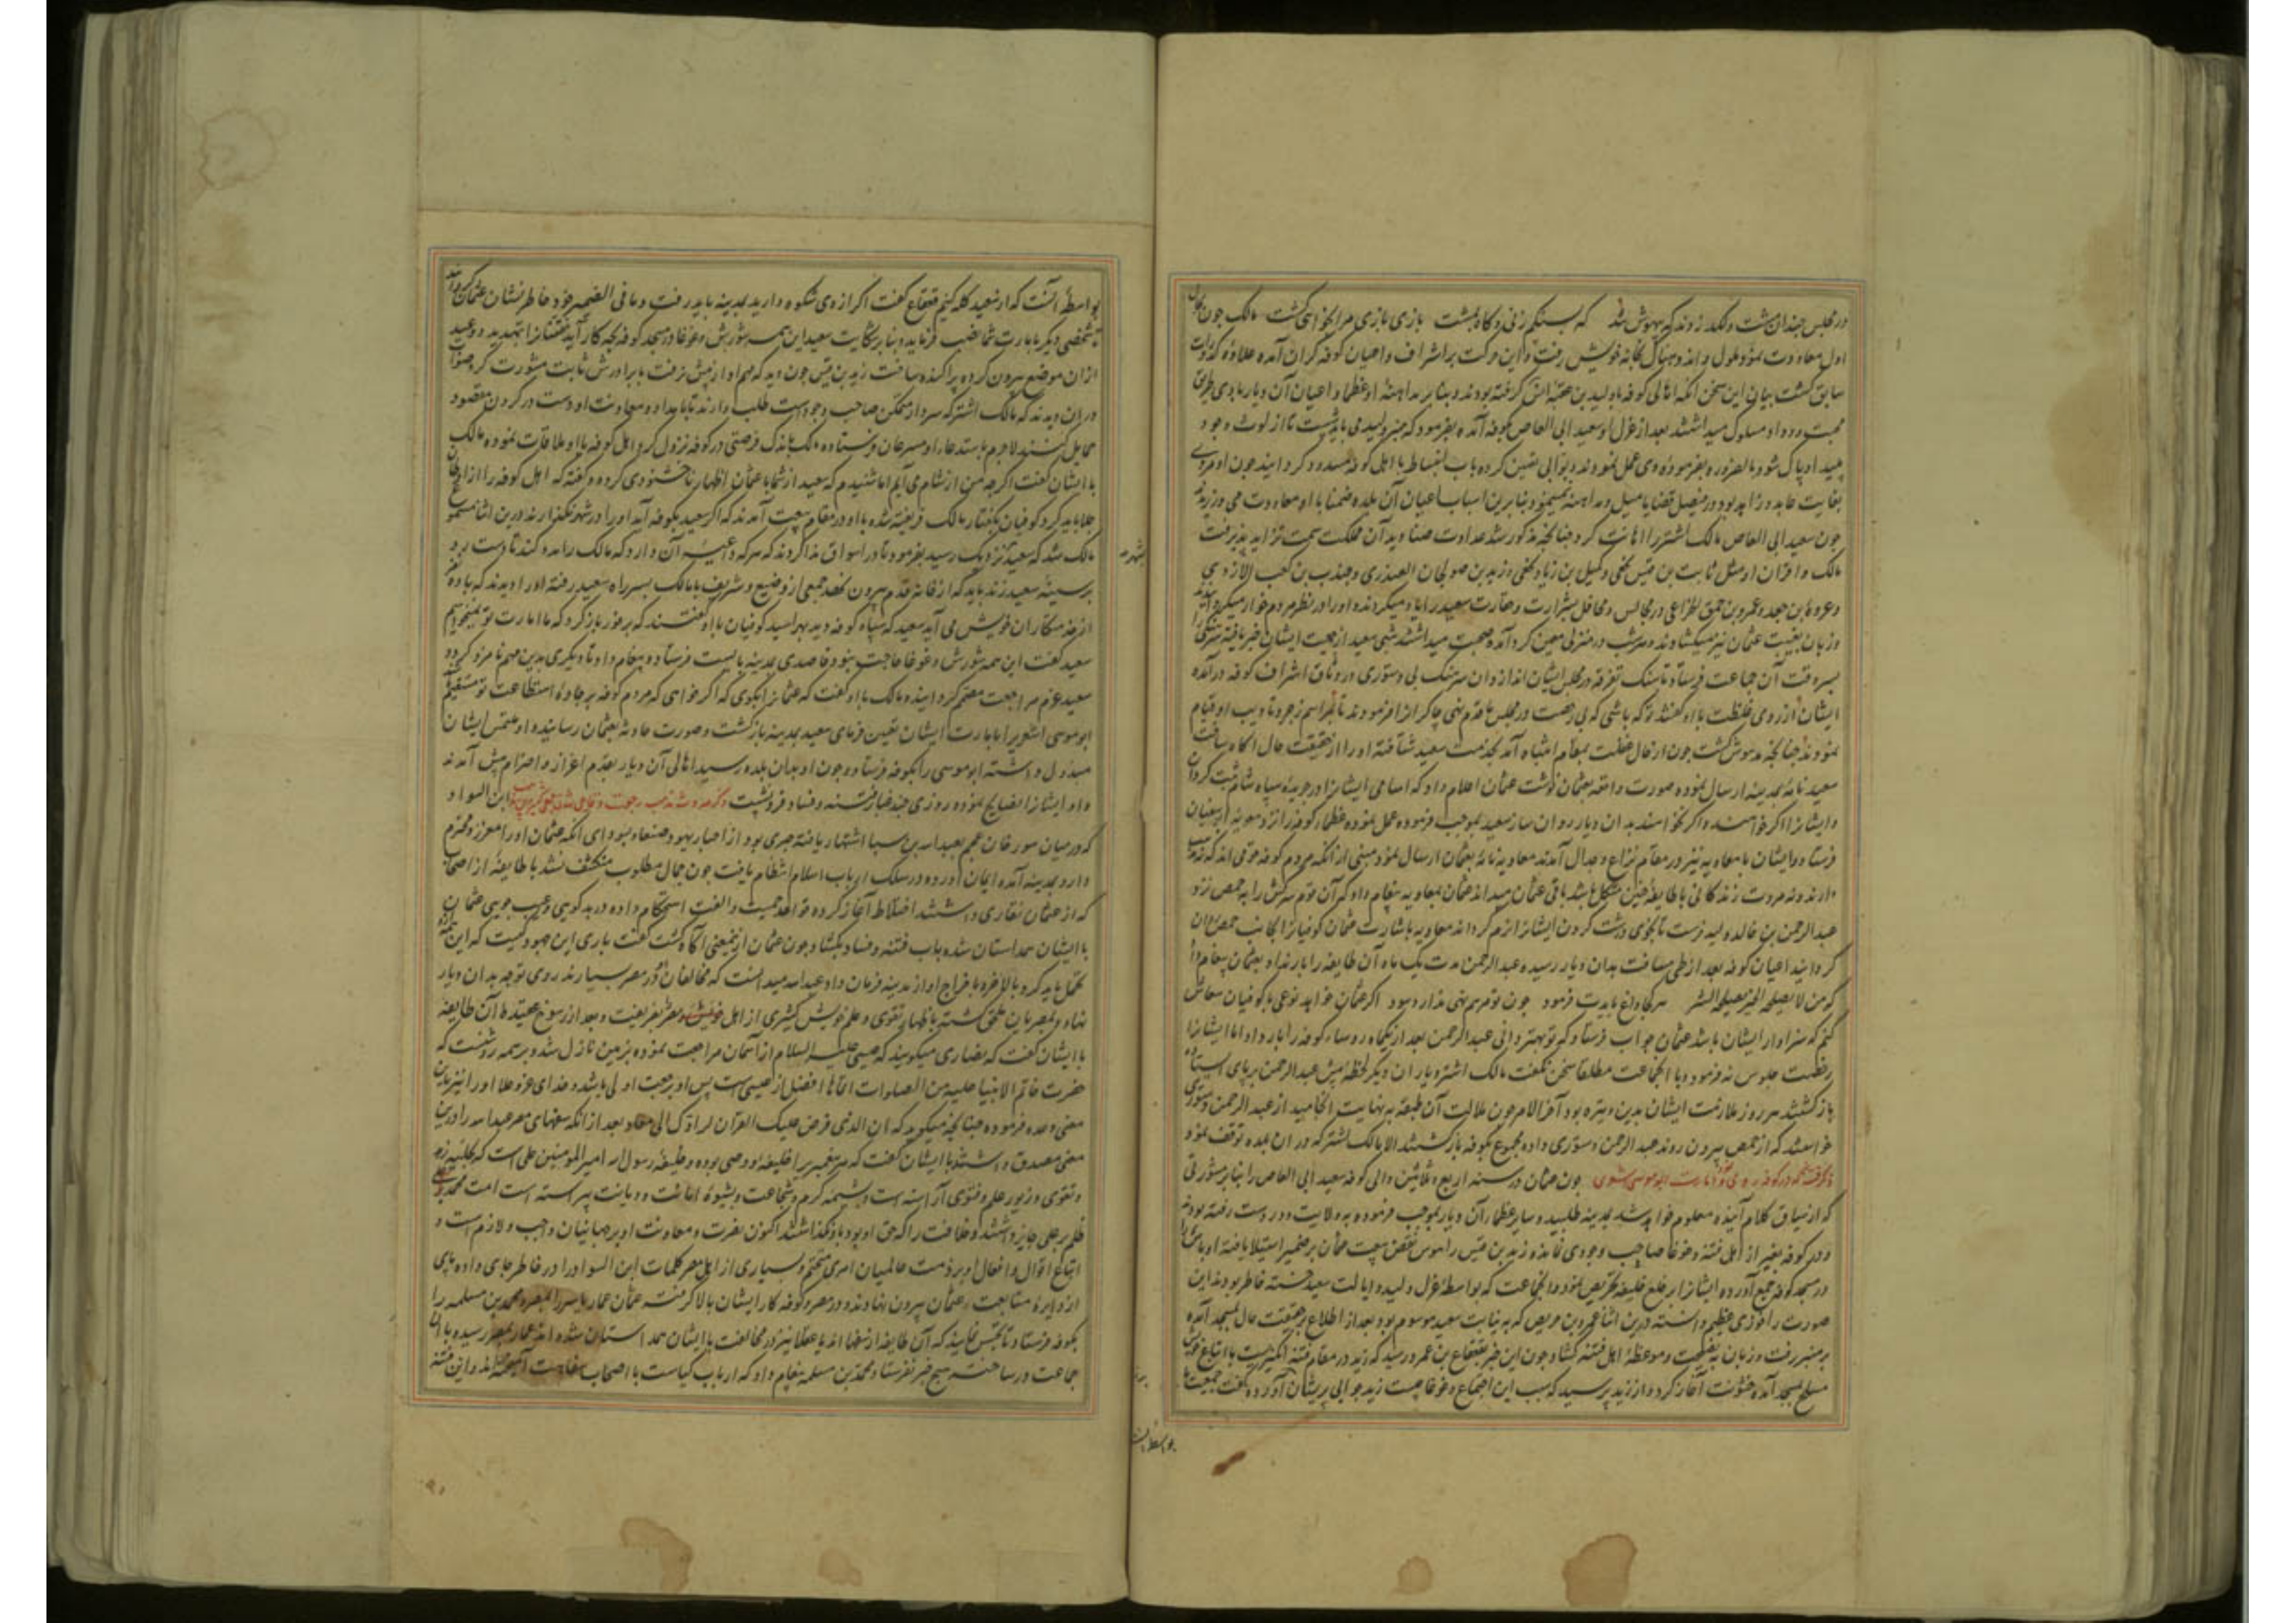 در مجلس چندان مشت و لکد زدند که بیهوش شد که بسنکم زنی و کاه بمشت بازی بازی مرا بخواهی کشت مالک چون بحال
اول معاودت نمود ملول و اندوهناک بخانه خویش رفت و این حرکت بر اشراف و اعیان کوفه کران آمده علاوه کدورات
سابق کشت بیان این سخن آنکه اهالی کوفه با ولید بن عقبه انس کرفته بودند و بنابر مداهنه او عظما و اعیان آن دیار با وی طریق
محبت و وداد مسلوک میداشتند بعد از عزل او سعید ابی العاص بکوفه آمده بفرمود که منبر ولید می باید شست تا از لوث وجود
پلید او پاک شود بالضروره بفرموده وی عمل نمودند و بوابی تعیین کرده باب انبساط با اهل کوفه مسدود کردانید چون او مردی
بغایت عابد و زاهد بود در فیصل قضایا میل و مداهنه نمینمود بنابرین اسباب اعیان آن بلده ضمنا با او معاودت می ورزیدند
چون سعید ابی العاص مالک اشتر را اهانت کرد چنانچه مذکور شد عداوت صنادید آن مملکت سمت تزاید پذیرفت
مالک و اقران او مثل ثابت بن قیس نخعی و کمیل بن زیاد نخعی و زید بن صوحان العبدری و جندب بن کعب الازدی
و عروة ابن جعد و عمرو بن حمق الخزاعی در مجالس و محافل شرارت و حقارت سعید را یاد میکردند و او را در نظر مردم خوار میکردانیدند
و زبان بغیبت عثمان نیز میکشادند و هر شب در منزلی معین کرد آمده صحبت میداشتند شبی سعید از جمعیت ایشان خبر یافته سرهنکی را
بسر وقت آن جماعت فرستاد تا سنک تفرقه در مجلس ایشان اندازد ان سرهنک بی دستوری در وثاق اشراف کوفه درآمده
ایشان از روی غلظت با او کفتند تو که باشی که بی رخصت در مجلس ما قدم نهی چاکر انرا فرمودند تا بمراسم زجر و تادیب او قیام
نمودند چنانچه مدهوش کشت چون از حال غفلت بمقام انتباه آمد بخدمت سعید شتافته او را از حقیقت حال آکاه ساخت
سعید نامه بمدینه ارسال نموده صورت واقعه بعثمان نوشت عثمان اعلام داد که اسامی ایشانرا در جریده سپاه شام ثبت کردان
و ایشانرا اکر خواهند و اکر نخواهند بدان دیار روان ساز سعید بموجب فرموده عمل نموده عظماء کوفه را نزد معویة ابن سفیان
فرستاد و ایشان با معاویه نیز در مقام نزاع و جدال آمدند معاویه نامه بعثمان ارسال نمود مبنی از آنکه مردم کوفه قومی اند که نه دین
دارند و نه مروت زندکانی با طایفه چنین مشکل باشد باقی عثمان میداند عثمان بمعاویه پیغام داد که آن قوم سرکش را به حمص نزد
عبد الرحمن بن خالد ولید فرست تا بخوی درشت کردن ایشانرا نرم کرداند معاویه باشارت عثمان کوفیانرا بجانب حمص روان
کردانید اعیان کوفه بعد از طی مسافت بدان دیار رسیده عبد الرحمن مدت یک ماه آن طایفه را بار نداد بعثمان پیغام داد
که من لا یصلحه الخیر یصلحه الشر هر کجا داغ بایدت فرمود چون تو مرهم نهی ندارد سود اکر عثمان خواهد نوعی با کوفیان معاش
کنم که سزاوار ایشان باشد عثمان جواب فرستاد که تو بهتر دانی عبد الرحمن بعد از یکماه روساء کوفه را بار داد اما ایشانرا
رخصت جلوس نفرمود و با انجماعت مطلقا سخن نکفت مالک اشتر و یاران دیکر لحظه پیش عبد الرحمن بر پای ایستاده
باز کشتند هر روز ملازمت ایشان بدین وتیره بود آخر الامر چون ملالت آن طبقه به نهایت انجامید از عبد الرحمن دستوری
خواستند که از حمص بیرون روند عبد الرحمن دستوری داده مجموع بکوفه باز کشتند الا مالک اشتر که در ان بلده توقف نمود
چون عثمان در سنه اربع و ثلاثین والی کوفه سعید ابی العاص را بنابر مشورتی
که از سیاق کلام آینده معلوم خواهد شد بمدینه طلبید و سایر عظماء آن دیار بموجب فرموده به ولایت و در دست رفته بودند
و در کوفه بغیر از اهل فتنه و غوغا صاحب وجودی نمانده زید بن قیس را هوس نقض بیعت عثمان بر ضمیر استیلا یافته اوباش را
در مسجد کوفه جمع آورده ایشانرا بر خلع خلیفه تحریص نمود و انجماعت که بواسطه عزل ولید و ایالت سعید خسته خاطر بودند این
صورت را فوزی عظیم دانسته درین اثنا عمرو بن حریص که به نیابت سعید موسوم بود بعد از اطلاع بر حقیقت حال بمسجد آمده
بر منبر رفت و زبان به نصیحت و موعظه اهل فتنه کشاد چون این خبر بقعقاع بن عمر و رسید که زید در مقام فتنه انکیزیست با اتباع خویش
مسلح بمسجد آمده خشونت آغاز کرد و از زید پرسید که سبب این اجتماع و غوغا چیست زید جوابی پریشان آورده کفت جمعیت ما
بواسطه آنست
بواسطه آنست که از سعید کله کنیم قعقاع کفت اکر از وی شکوه دارید بمدینه باید رفت و ما فی الضمیر خود خاطر نشان عثمان کردانید
تا شخصی دیکر بامارت شما نصب فرماید و بنابر شکایت سعید این همه شورش و غوغا در مسجد کوفه بچه کار آید فتنانرا بتهدید و وعید
ازان موضع بیرون کرده پراکنده ساخت زید بن قیس چون دید که مهم او از پیش نرفت با برادرش ثابت مشورت کرد صواب
در ان دیدند که مالک اشتر که سردار متمکن صاحب وجود است طلب دارند تا بامداد و معاونت او دست در کردن مقصود
حمایل کنند لاجرم باستدعاء او مسرعان فرستاده مالک باندک فرصتی در کوفه نزول کرد و اهل کوفه با او ملاقات نموده مالک
با ایشان کفت اکرچه من از شام می آیم اما شنیدم که سعید از شما با عثمان اظهار ناخشنودی کرده و کفته که اهل کوفه را از اوطان
جلا باید کرد کوفیان بکفتار مالک فریفته شده با او در مقام بیعت آمدند که اکر سعید بکوفه آید او را در شهر نکذارند درین اثنا مسموع
مالک شد که سعید نزدیک رسید بفرمود تا در اسواق ندا کردند که هر که داعیه آن دارد که مالک را مدد کند تا دست رد
بر سینه سعید زند باید که از خانه قدم بیرون نهد جمعی از وضیع و شریف با مالک بسر راه سعید رفته او را دیدند که با ده نفر
از خدمتکاران خویش می آید سعید که سپاه کوفه دید بهراسید کوفیان با او کفتند که برخور باز کرد که ما امارت تو نمیخواهیم
سعید کفت این همه شورش و غوغا حاجت نبود قاصدی بمدینه بایست فرستاد و پیغام داد تا دیکری بدین مهم نامزد کردد
سعید عزم مراجعت مصمم کردانید و مالک با او کفت که عثمانرا بکوی که اکر خواهی که مردم کوفه بر جاده استطاعت تو مستقیم
ابو موسی اشعری را بامارت ایشان تعیین فرمای سعید بمدینه باز کشت و صورت حادثه بعثمان رسانید و او ملتمس ایشان
مبذول داشته ابو موسی را بکوفه فرستاد و چون او بدان بلده رسید اهالی آن دیار بقدم اعزاز و احترام پیش آمدند
و او ایشانرا نصایح نموده روزی چند غبار فتنه و فساد فرو نشست ابن السوا د
که در میان مورخان عجم بعبد الله بن سبا اشتهار یافته حبری بود از احبار یهود صنعا و بسودای آنکه عثمان او را معزز و محترم
دارد بمدینه آمده ایمان آورده در سلک ارباب اسلام انتظام یافت چون جمال مطلوب منکشف نشد با طایفه از اصحاب
که از عثمان نقاری داشتند اختلاط آغاز کرده قواعد جمعیت و الفت استحکام داده در بدکویی و عیب جویی عثمان
با ایشان همداستان شده باب فتنه و فساد بکشاد و چون عثمان ازینمعنی آکاه کشت کفت باری این جهود کیست که این همه از او
تحمل باید کرد بالاخره باخراج او از مدینه فرمان داد عبد الله میدانست که مخالفان در مصر بسیارند روی توجه بدان دیار
نهاد و بمصریان ملحق کشته باظهار تقوی و علم خویش کثیری از اهل مصر بفریفت و بعد از رسوخ عقیده ما آن طایفه
با ایشان کفت که نصاری میکویند که عیسی علیه السلام از آسمان مراجعت نموده بزمین نازل شد و بر همه روشنست که
حضرت خاتم الانبیا علیه من الصلوات انماها افضل از عیسی است پس او برجعت اولی باشد و خدای عز و علا او را نیز باین
معنی وعده فرموده چنانچه میکوید که ان الذی فرض علیک القرآن لرادک الی معاد بعد از آنکه سفهای مصر عبد الله را درین
معنی مصدق داشتند با ایشان کفت که هر پیغمبر را خلیفه و وصی بوده و خلیفه رسول الله امیر المؤمنین علی است که بحلیه زهد
و تقوی و زیور علم و فتوی آراسته است و بشیمه کرم و شجاعت و بشیوه امانت و دیانت پیراسته است امت محمد
ظلم بر علی جایز داشتند و خلافت را که حق او بود باو نکذاشتند اکنون نصرت و معاونت او بر جهانیان واجب و لازم است و
اتباع اقوال و افعال او بر ذمت عالمیان امری متحتم و بسیاری از اهل مصر کلمات ابن السوا د را در خاطر جای داده پای
از دایره متابعت عثمان بیرون نهادند و در مصر و کوفه کار ایشان بالا کرفت عثمان عمار یاسر را بمصر و محمد بن مسلمه را
بکوفه فرستاد تا تجسس نمایند که آن طایفه از سفها اند یا عقلا نیز در مخالفت با ایشان همداستان شده اند عمار بمصر رسیده با آن
جماعت در ساخت هیچ خبر نفرستاد و محمد بن مسلمه پیغام داد که ارباب کیاست با اصحاب سفاهت آمیخته اند و این فتنه